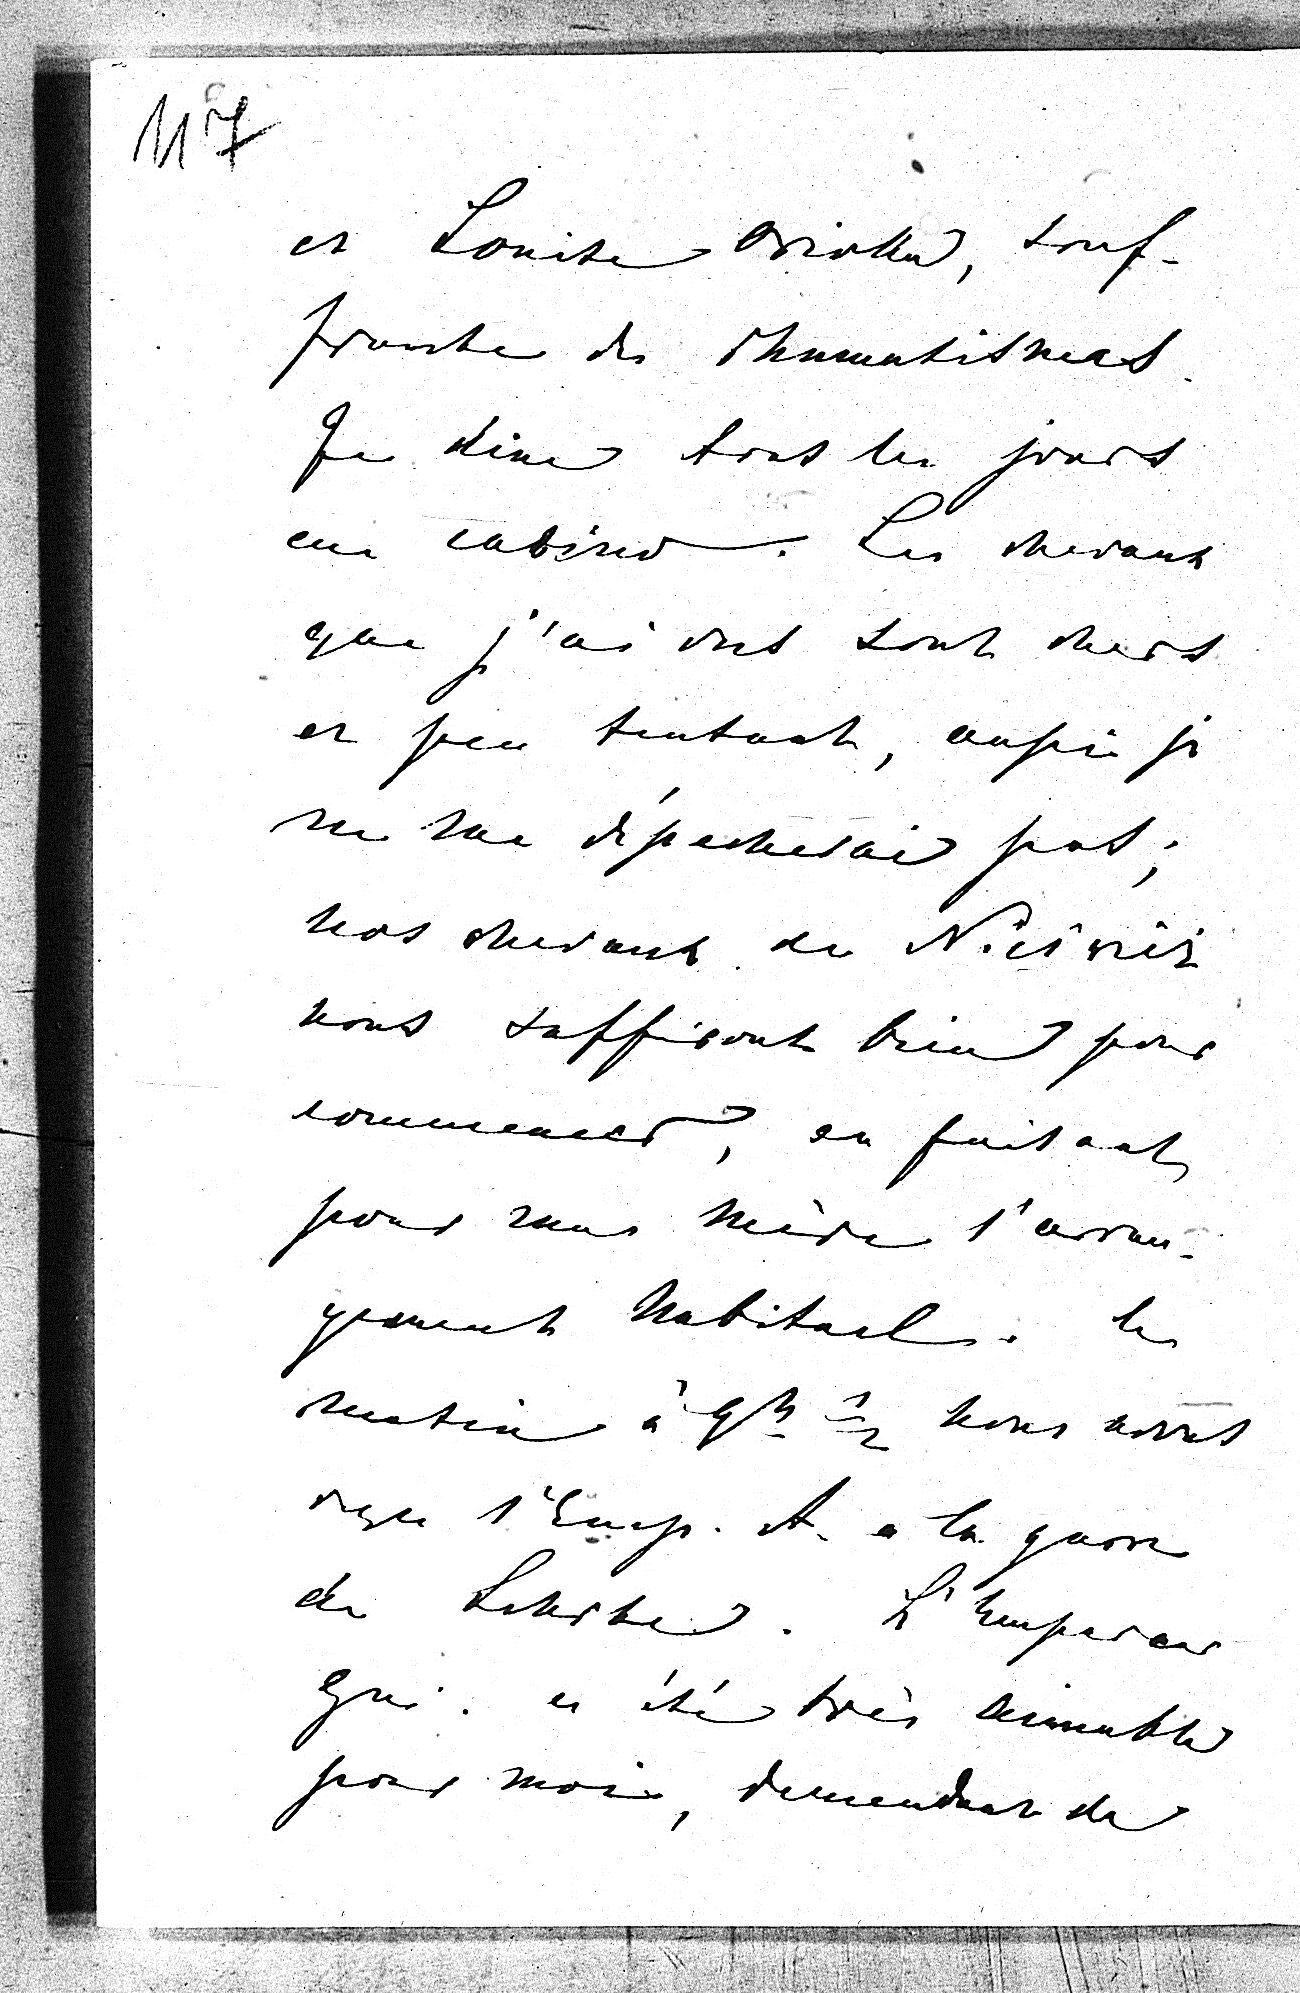 117
et Louise souf-
frante de rhumatismes.
Je dine tous les jours
en cabinet. Les chevaux
que j'ai vus sont chers
et peu tentant, aussi je
ne me dépecherai pas;
nos chevaux de Nieśwież
nous suffiront bien pour
commencer, en faisant
pour ma mère l'arran-
gement habituel. Ce
matin à 9h 1/2 nous avons
reçu l'Emp. A. a la garre
de Lehrte. L'Empereur
qui a été très aimable
pour moi, demendant de